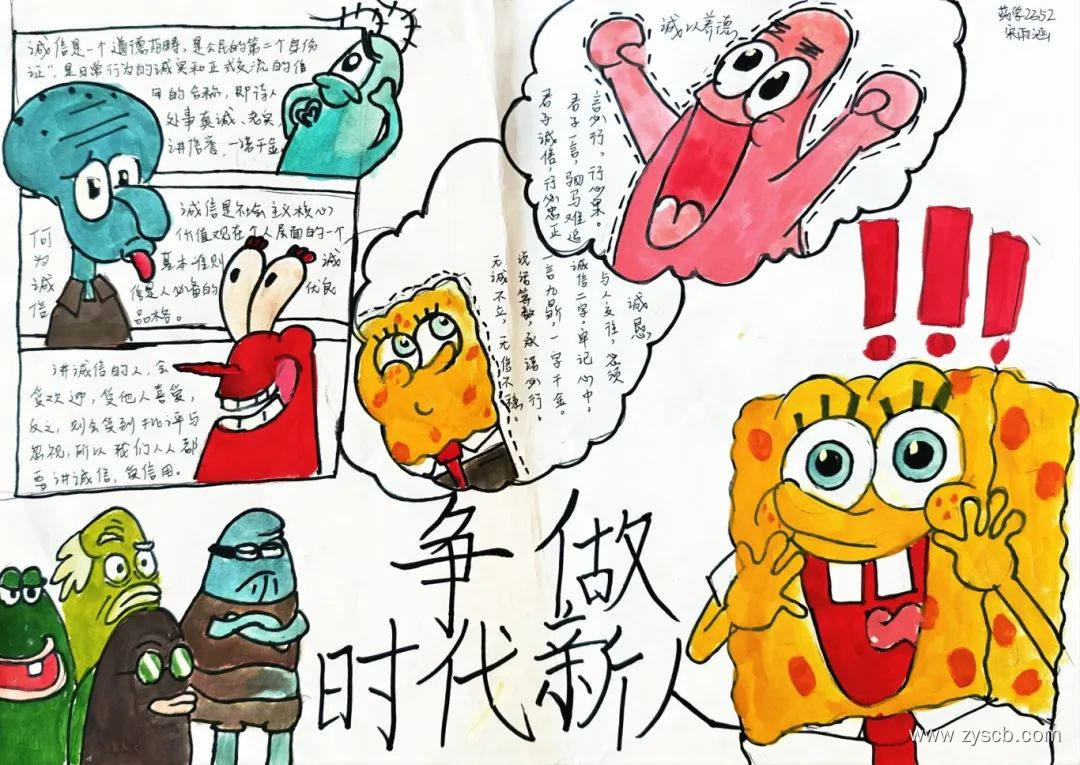 诚信是一个道德范畴,是公民的第二个身份
证",是日常行为的诚实和正式交流的信
用的合称,即待人
处事真诚、老实、
讲信誉,一诺千金。
何
为
诚
信
诚信是社会主义核心
价值观在个人层面的一个
基本准则 诚
信是人必备的 优良
品格。
讲诚信的人,会
受欢迎,受他人喜爱,
反之,则会受到批评与
忽视,所以我们人人都
要讲诚信,守信用。
诚以养德
言必行,行必果。
君子一言,驷马难追
君子诚信,行必忠正
诚恳,
与人交往,必须
诚信二字,牢记心中。
一言九鼎,一字千金。
说话算数,承诺必行。
无诚不立,无信不稳
药学2252
!!!
争做
时代新人
www.zyscb.com